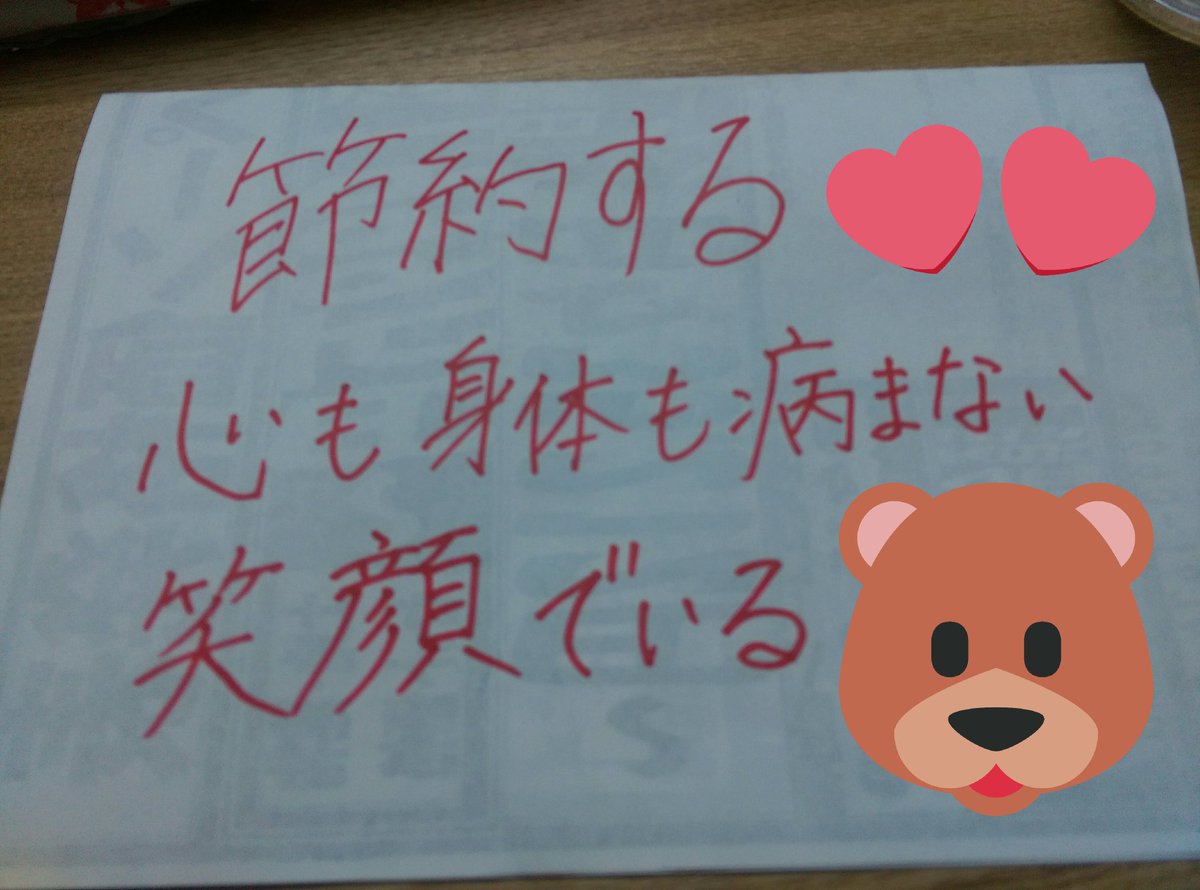 節約する
心も身体も病まない
笑顔でいる